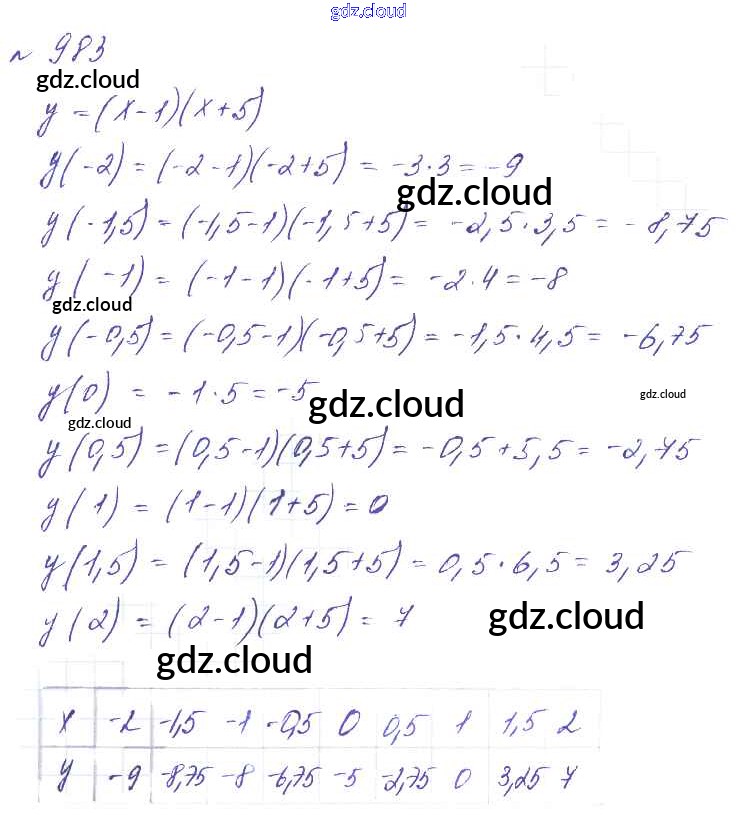 gdz.cloud
№ 983
gdz.cloud
y = (x-1)(x+5)
y(-2) = (-2-1)(-2+5) = -3·3 = -9
gdz.cloud
y(-1,5) = (-1,5-1)(-1,5+5) = -2,5·3,5 = -8,75
y(-1) = (-1-1)(-1+5) = -2·4 = -8
gdz.cloud
y(-0,5) = (-0,5-1)(-0,5+5) = -1,5·4,5 = -6,75
y(0) = -1·5 = -5
gdz.cloud
gdz.cloud
gdz.cloud
y(0,5) = (0,5-1)(0,5+5) = -0,5+5,5 = -2,75
y(1) = (1-1)(1+5) = 0
y(1,5) = (1,5-1)(1,5+5) = 0,5·6,5 = 3,25
y(2) = (2-1)(2+5) = 7
gdz.cloud
gdz.cloud
x -2 -1,5 -1 -0,5 0 0,5 1 1,5 2
y -9 -8,75 -8 -6,75 -5 -2,75 0 3,25 7